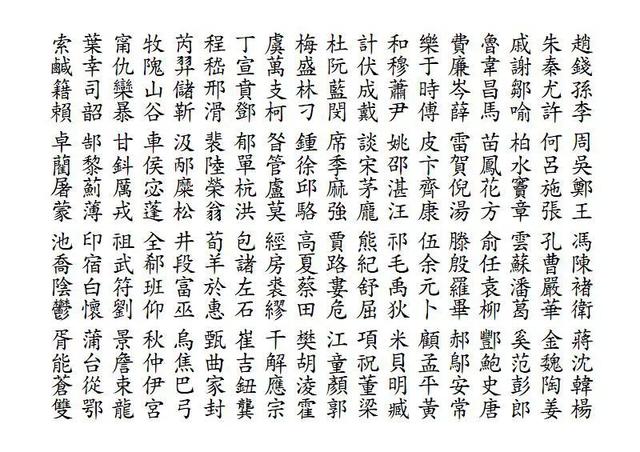 趙錢孫李周吳鄭王馮陳褚衛蔣沈韓楊
朱秦尤許何呂施張孔曹嚴華金魏陶姜
戚謝鄒喻柏水竇章雲蘇潘葛奚范彭郎
魯韋昌馬苗鳳花方俞任袁柳酆鮑史唐
費廉岑薛雷賀倪湯滕殷羅畢郝鄔安常
樂于時傅皮卞齊康伍余元卜顧孟平黃
和穆蕭尹姚邵湛汪祁毛禹狄米貝明臧
計伏成戴談宋茅龐熊紀舒屈項祝董梁
杜阮藍閔席季麻強賈路婁危江童顏郭
梅盛林刁鍾徐邱駱高夏蔡田樊胡淩霍
虞萬支柯昝管盧莫經房裘繆干解應宗
丁宣賁鄧郁單杭洪包諸左石崔吉鈕龔
程嵇邢滑裴陸榮翁荀羊於惠甄曲家封
芮羿儲靳汲邴糜松井段富巫烏焦巴弓
牧隗山谷車侯宓蓬全郗班仰秋仲伊宮
甯仇欒暴甘鈄厲戎祖武符劉景詹束龍
葉幸司韶郜黎薊薄印宿白懷蒲台從鄂
索鹹籍賴卓藺屠蒙池喬陰鬱胥能蒼雙